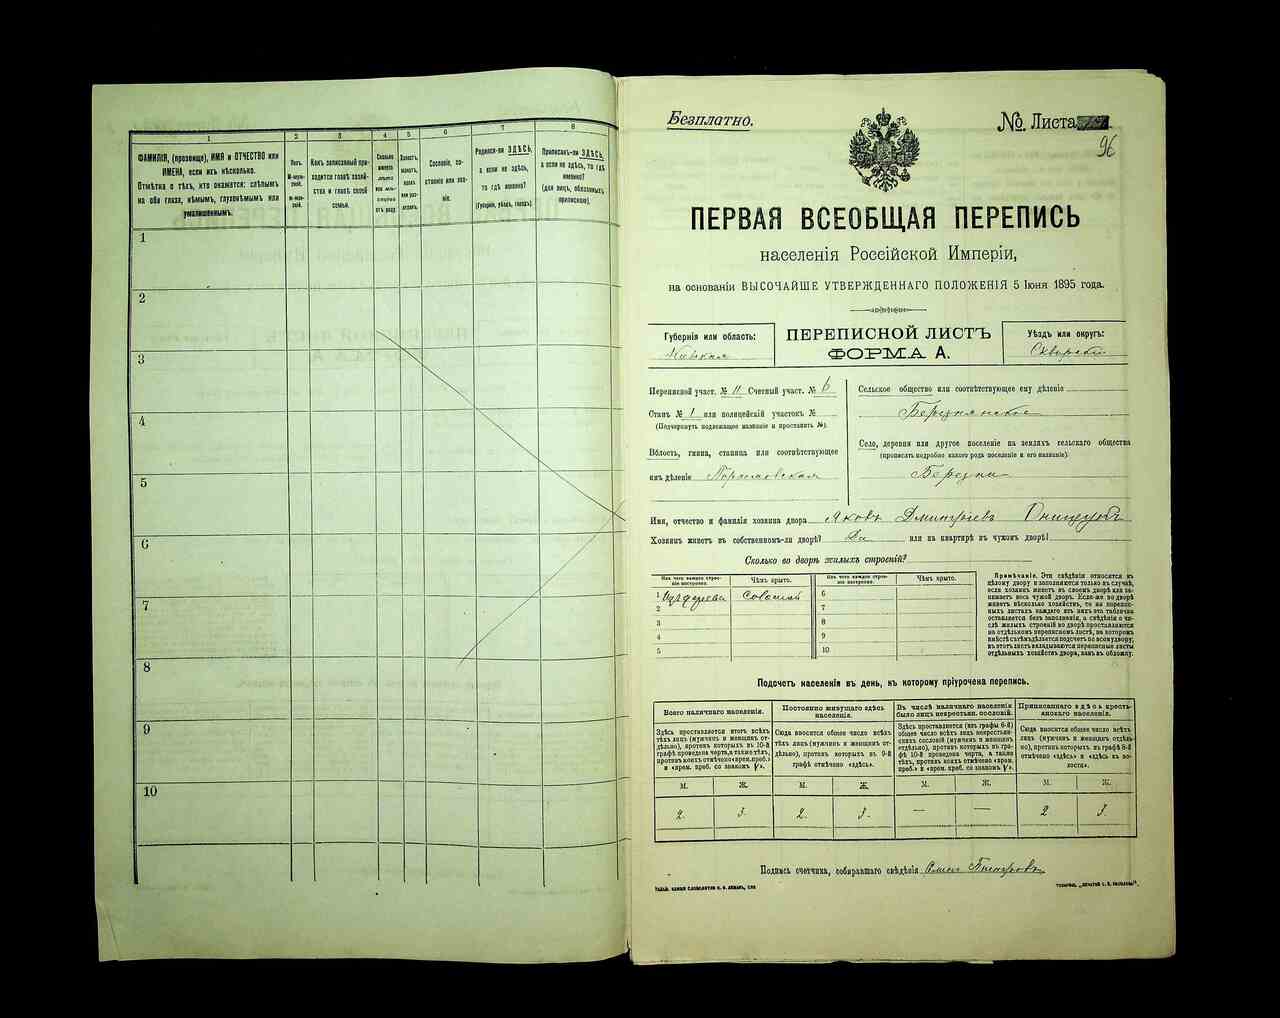 1
2
3
4
5
6
7
8
ФАМИЛІЯ, (прозвище), ИМЯ и ОТЧЕСТВО или
ИМЕНА, если ихъ нѣсколько.
Отмѣтка о тѣхъ, кто окажется: слѣпымъ
на оба глаза, нѣмымъ, глухонѣмымъ или
умалишеннымъ.
Полъ.
М-муж-
ской.
Ж-жен-
скій.
Какъ записанный при-
ходится главѣ хозяй-
ства и главѣ своей
семьи.
Сколько
минуло
лѣтъ
или мѣ-
сяцевъ
отъ роду
Холостъ,
женатъ,
вдовъ
или раз-
веденъ.
Сословіе, со-
стояніе или зва-
ніе.
Родился-ли ЗДѢСЬ,
а если не здѣсь,
то гдѣ именно?
(Губернія, уѣздъ, городъ)
Приписанъ-ли ЗДѢСЬ,
а если не здѣсь, то гдѣ
именно?
(для лицъ, обязанныхъ
припискою).
1
2
3
4
5
6
7
8
9
10
Безплатно.
№ Листа
96
ПЕРВАЯ ВСЕОБЩАЯ ПЕРЕПИСЬ
населенія Россійской Имперіи,
на основаніи ВЫСОЧАЙШЕ УТВЕРЖДЕННАГО ПОЛОЖЕНІЯ 5 Іюня 1895 года.
Губернія или область:
Кіевская
ПЕРЕПИСНОЙ ЛИСТЪ
ФОРМА А.
Уѣздъ или округъ:
Сквирскій
Переписной участ. № 11 Счетный участ. № 6
Станъ № 1 или полицейскій участокъ №
(Подчеркнуть подлежащее названіе и проставить №).
Волость, гмина, станица или соотвѣтствующее
имъ дѣленіе
Сельское общество или соотвѣтствующее ему дѣленіе
Березнянское
Село, деревня или другое поселеніе на земляхъ сельскаго общества
(прописать подробно какого рода поселеніе и его названіе).
Березна
Имя, отчество и фамилія хозяина двора Яковъ Дмитріевъ
Хозяинъ живетъ въ собственномъ-ли дворѣ? Да или на квартирѣ въ чужомъ дворѣ?
Сколько во дворѣ жилыхъ строеній?
Изъ чего каждое строе-
ніе построено.
Чѣмъ крыто.
Изъ чего каждое строе-
ніе построено.
Чѣмъ крыто.
1 Изъ дерева Соломой
2
3
4
5
6
7
8
9
10
Примѣчаніе. Эти свѣдѣнія относятся къ
цѣлому двору и заполняются только въ случаѣ,
если хозяинъ живетъ въ своемъ дворѣ или за-
нимаетъ весь чужой дворъ. Если-же во дворѣ
живетъ нѣсколько хозяйствъ, то на перепис-
ныхъ листахъ каждаго изъ нихъ эта табличка
оставляется безъ заполненія, а свѣдѣнія о чи-
слѣ жилыхъ строеній во дворѣ проставляются
на отдѣльномъ переписномъ листѣ, на которомъ
вмѣстѣ съ тѣмъ дѣлается подсчетъ по всему двору;
въ этотъ листъ вкладываются переписные листы
отдѣльныхъ хозяйствъ двора, какъ въ обложку.
Подсчетъ населенія въ день, къ которому пріурочена перепись.
Всего наличнаго населенія.
Постоянно живущаго здѣсь
населенія.
Въ числѣ наличнаго населенія
было лицъ некрестьян. сословій.
Приписаннаго здѣсь кресть-
янскаго населенія.
Здѣсь проставляется итогъ всѣхъ
тѣхъ лиц (мужчинъ и женщинъ от-
дѣльно), противъ которыхъ въ 10-й
графѣ проведена черта, а также тѣхъ,
противъ коихъ отмѣчено «врем. преб.»
и «врем. преб. со знакомъ V».
Сюда вносится общее число всѣхъ
тѣхъ лицъ (мужчинъ и женщинъ от-
дѣльно), противъ которыхъ въ 9-й
графѣ отмѣчено «здѣсь».
Здѣсь проставляется (изъ графы 6-й)
общее число всѣхъ лицъ некрестьян-
скихъ сословій (мужчинъ и женщинъ
отдѣльно), противъ которыхъ въ гра-
фѣ 10-й проведена черта, а также
тѣхъ, противъ коихъ отмѣчено «врем.
преб.» и «врем. преб. со знакомъ V».
Сюда вносится общее число всѣхъ
лицъ (мужчинъ и женщинъ отдѣль-
но), противъ которыхъ въ графѣ 8-й
отмѣчено «здѣсь» и «здѣсь въ во-
лости».
М. Ж. М. Ж. М. Ж. М. Ж.
2. 3. 2. 3. — — 2 3.
Подпись счетчика, собиравшаго свѣдѣнія